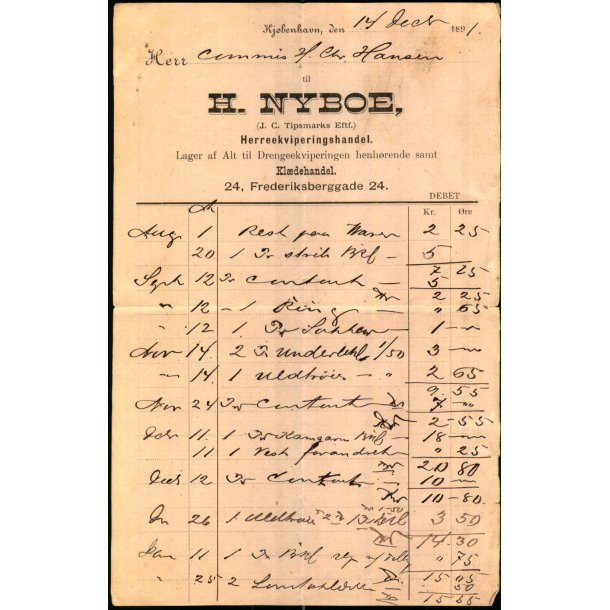 Kjøbenhavn, den 14 Decbr 1891.
Herr Commis H. Chr. Hansen
til
H. NYBOE,
(J. C. Tipsmarks Eftf.)
Herreekviperingshandel.
Lager af Alt til Drengeekviperingen henhørende samt
Klædehandel.
24, Frederiksberggade 24.
DEBET
Kr. Øre
Aug 1 Rest paa Varer 2 25
20 1 Pr 5
7 25
Sept 12 Pr Contant 5
2 25
" 12 - 1 Ring " 65
" 12 1 Pr 1 "
Nov 14. 2 Pr 1/50 3 "
" 14. 1 Uldtrøie - " 2 65
9 55
Nov 24 Pr Contant 7 "
2 - 55
11. 1 Pr Kamgarn 18
11 1 Vest forandret " 25
20 80
Decb 12 Pr Contant 10
10 - 80
26 1 3 50
14 30
Jan 11 1 Pr " 75
15 05
" 25 2 50
15 55